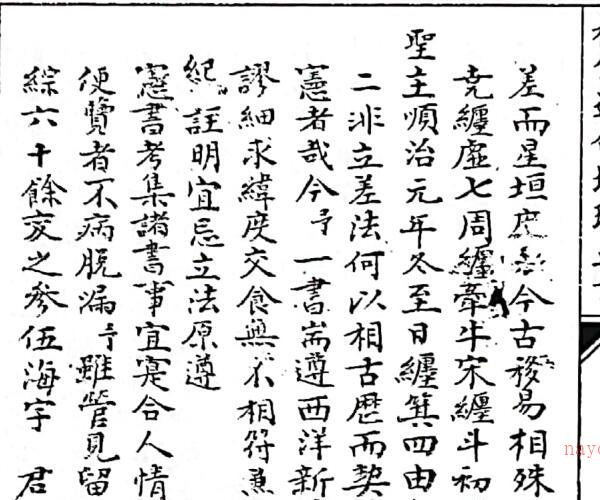 差而星垣度今古移易相殊
堯纏虛七周纏牽牛宋纏斗初
聖主順治元年冬至日纏箕四由
二非立差法何以相古歴而契
憲者哉今予一書耑遵西洋新
謬細求緯度交食無不相符兼
紀註明宜忌立法原遵
憲書考集諸書事宜寔合人情
便覽者不病脫漏予雖管見留
綜六十餘亥之參伍海宇 君
nayo